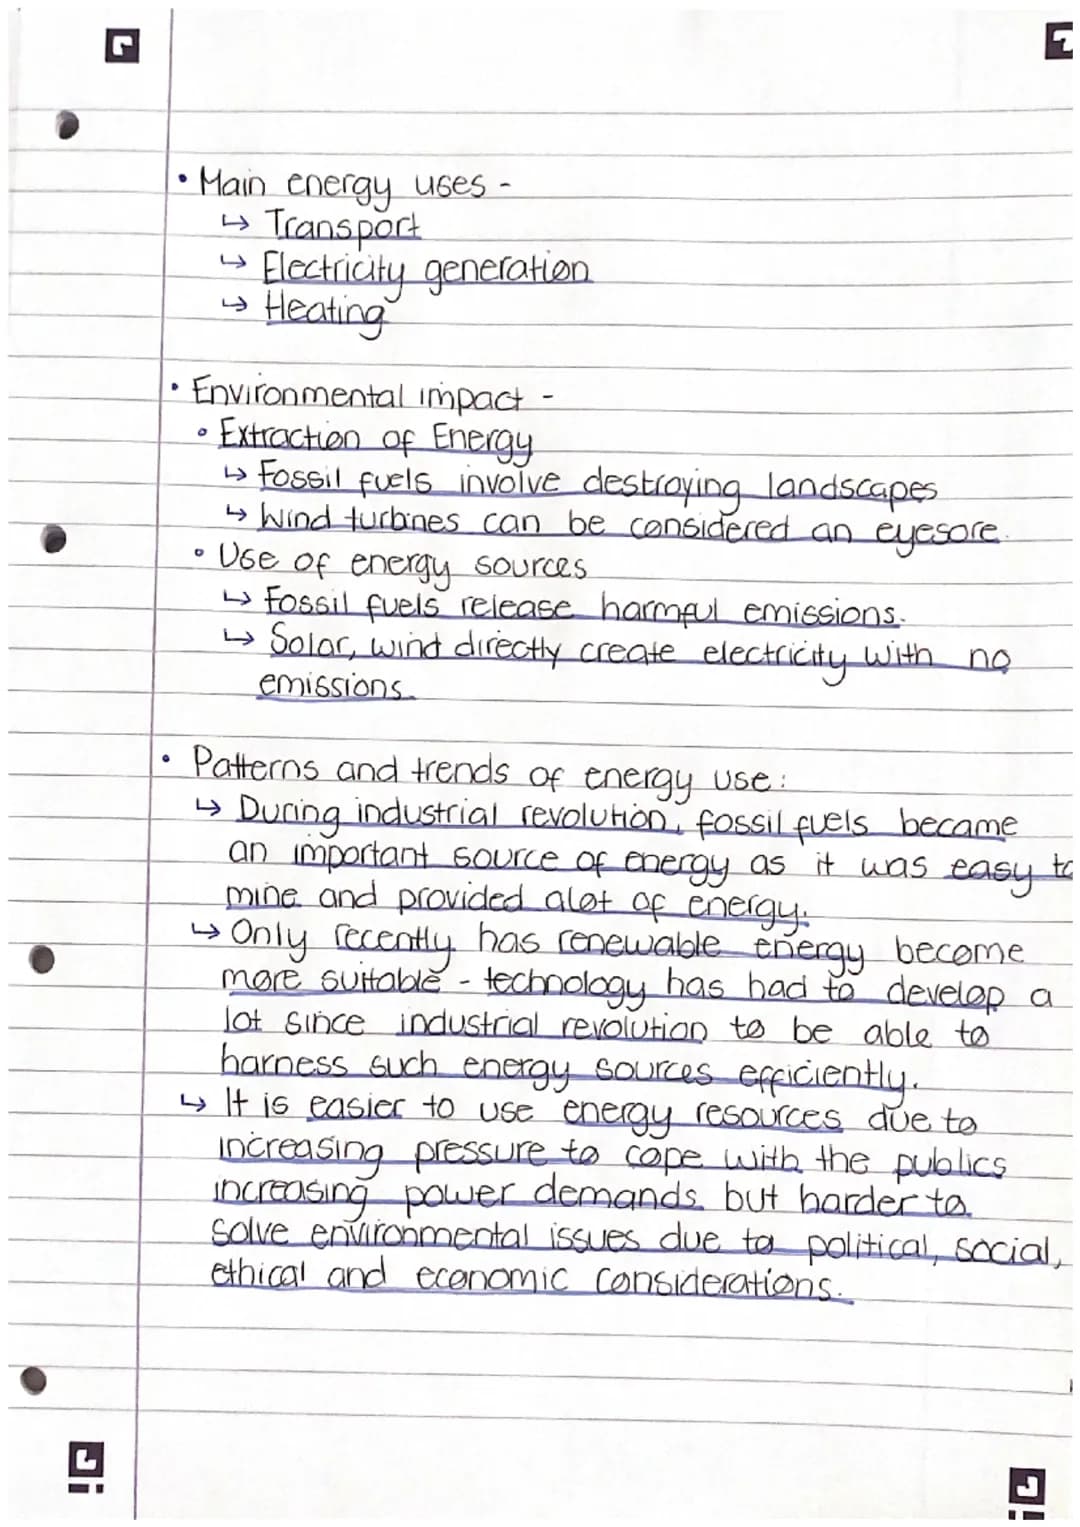 • Main energy uses -
↳ Transport
↳ Electricity generation
↳ Heating
• Environmental impact -
• Extraction of Energy
↳ Fossil fuels involve destroying landscapes
↳ Wind turbines can be considered an eyesore.
• Use of energy sources
↳ Fossil fuels release harmful emissions.
↳ Solar, wind directly create electricity with no
emissions.
• Patterns and trends of energy use:
↳ During industrial revolution, fossil fuels became
an important source of energy as it was easy to
mine and provided alot of energy.
↳ Only recently has renewable energy become
more suitable - technology has had to develop a
lot since industrial revolution to be able to
harness such energy sources efficiently.
↳ It is easier to use energy resources due to
increasing pressure to cope with the publics
increasing power demands but harder to
solve environmental issues due to political, social,
ethical and economic considerations.